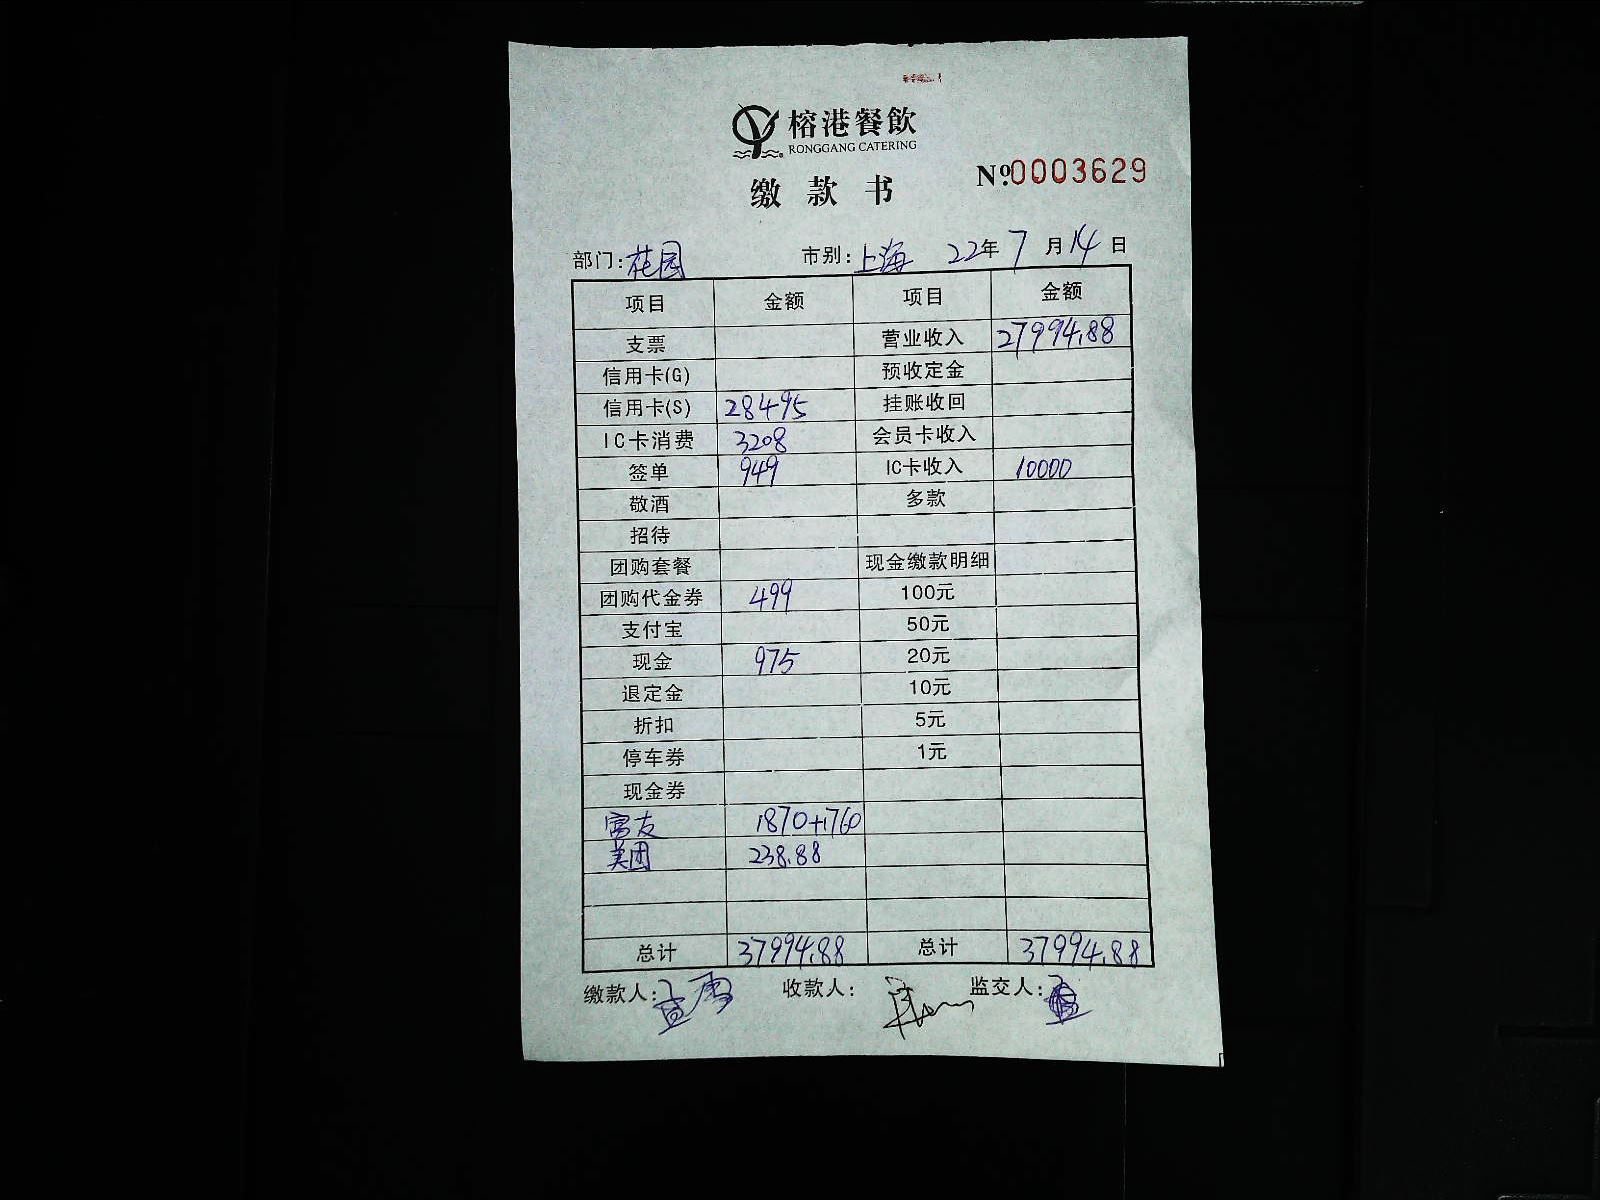 榕港餐飲
RONGGANG CATERING
缴款书
Nº0003629
部门:花园 市别:上海 22年7月14日
项目 金额 项目 金额
支票 营业收入 27994.88
信用卡(G) 预收定金
信用卡(S) 28495 挂账收回
IC卡消费 3208 会员卡收入
签单 949 IC卡收入 10000
敬酒 多款
招待
团购套餐 现金缴款明细
团购代金券 499 100元
支付宝 50元
现金 975 20元
退定金 10元
折扣 5元
停车券 1元
现金券
富友 1870+1760
美团 238.88
总计 37994.88 总计 37994.88
缴款人: 收款人: 监交人: